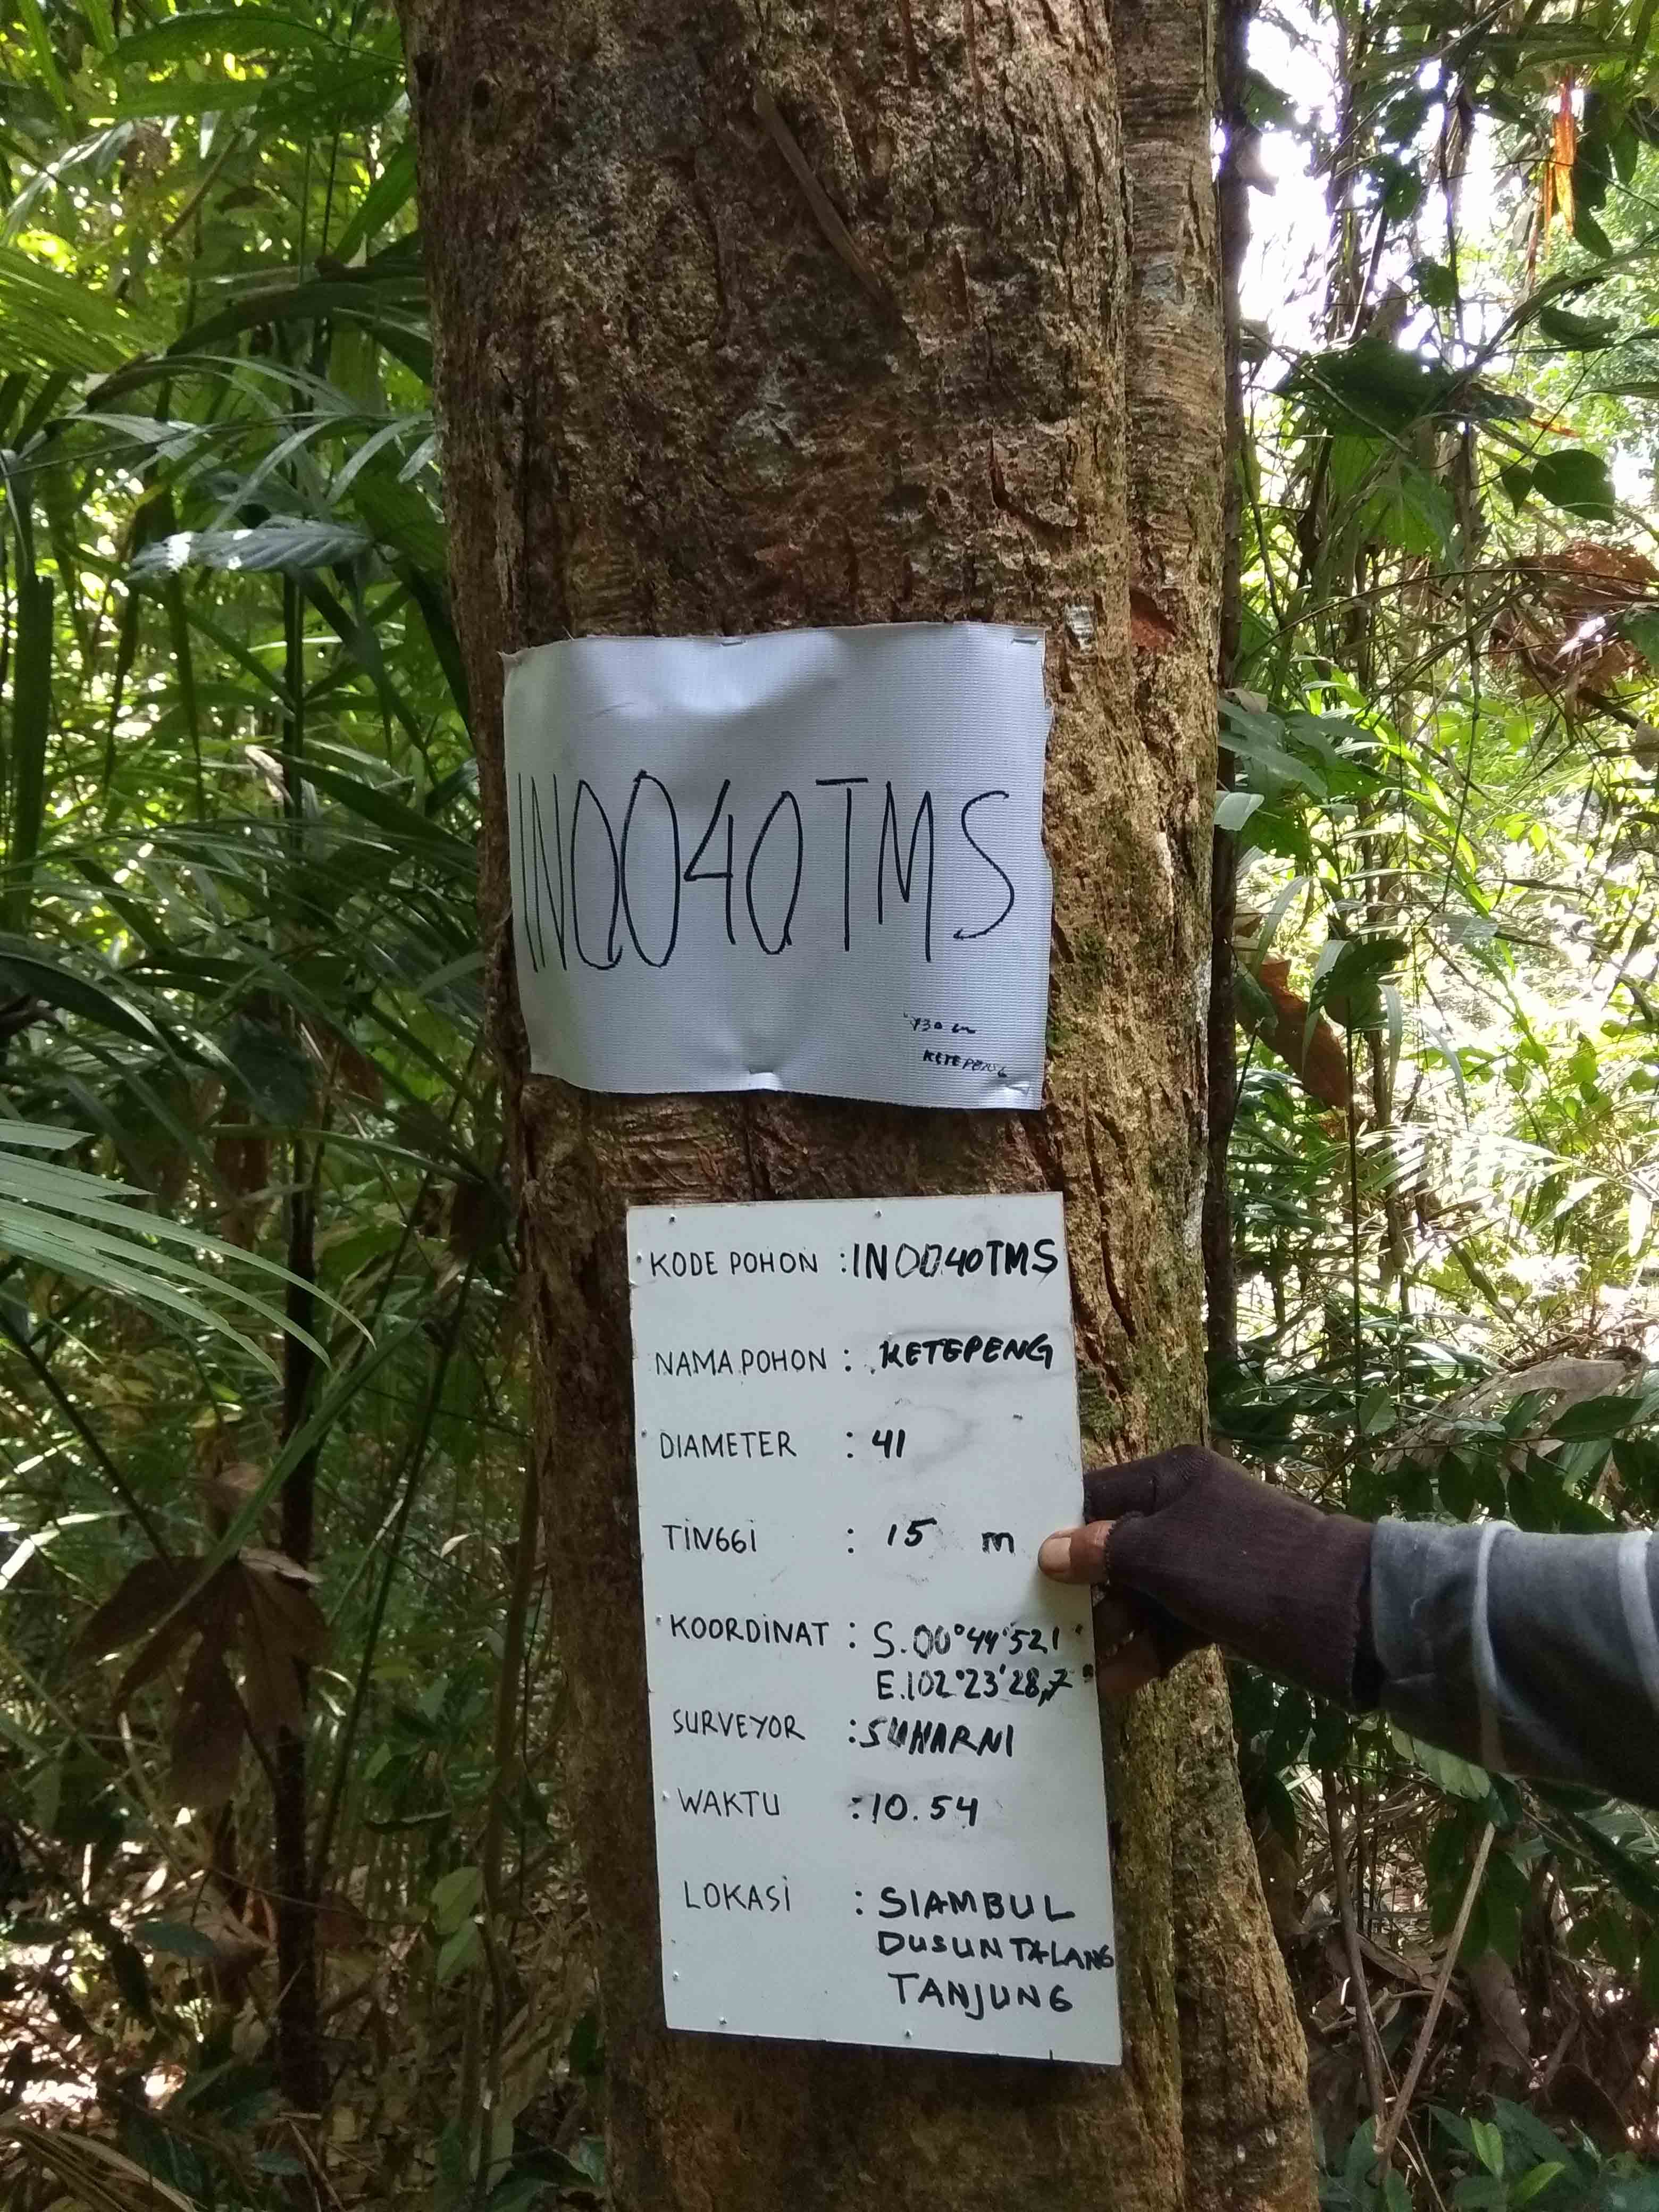 IN0040TMS
130 cm
KETEPENG
KODE POHON : IN0040TMS
NAMA POHON : KETEPENG
DIAMETER : 41
TINGGI : 15 m
KOORDINAT : S.00°44'52,1"
E.102°23'28,7"
SURVEYOR : SUHARNI
WAKTU : 10.54
LOKASI : SIAMBUL
DUSUN TALANG
TANJUNG